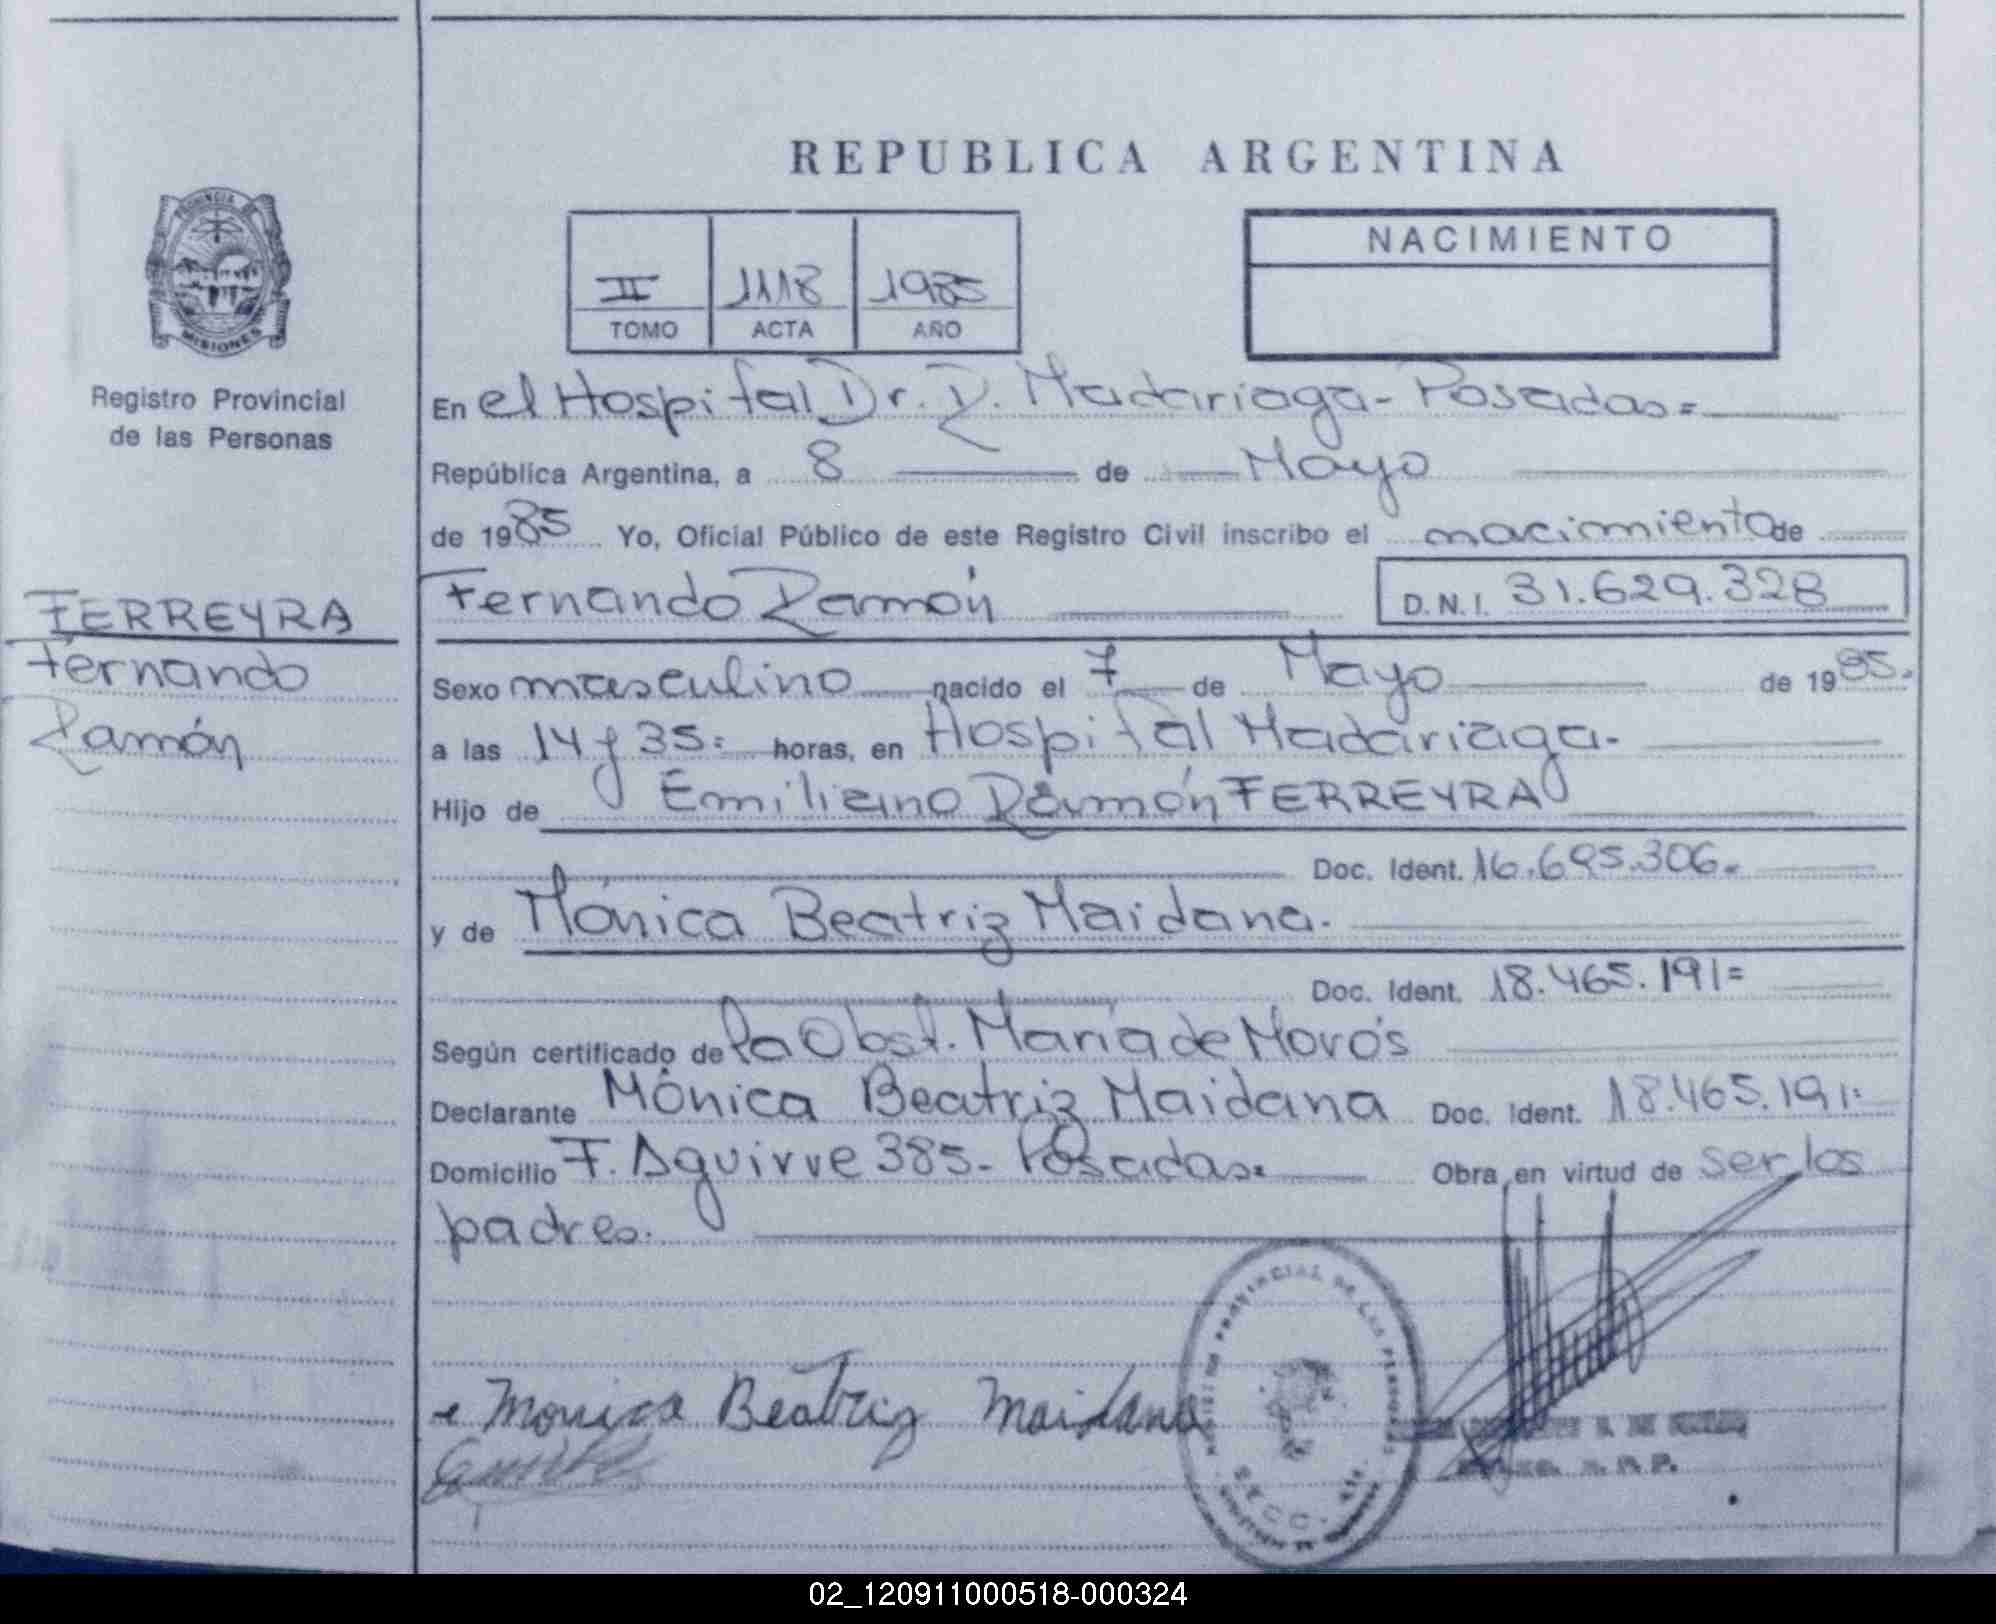 REPUBLICA ARGENTINA
PROVINCIA DE
MISIONES
Registro Provincial
de las Personas
II 1118 1985
TOMO ACTA AÑO
NACIMIENTO
En el Hospital Dr. R. Madariaga - Posadas =
República Argentina, a 8 de Mayo
de 1985 Yo, Oficial Público de este Registro Civil inscribo el nacimiento de
FERREYRA
Fernando
Ramón
Fernando Ramón D.N.I. 31.629.328
Sexo masculino nacido el 7 de Mayo de 1985.
a las 14 y 35= horas, en Hospital Madariaga.
Hijo de Emiliano Ramón FERREYRA
Doc. Ident. 16.695.306.
y de Mónica Beatriz Maidana.
Doc. Ident. 18.465.191=
Según certificado de la Obst. María de Morós
Declarante Mónica Beatriz Maidana Doc. Ident. 18.465.191=
Domicilio F. Aguirre 385- Posadas= Obra en virtud de ser los
padres.
Monica Beatriz Maidana
PROVINCIAL DE LAS PERSONAS
SECC.
02_120911000518-000324